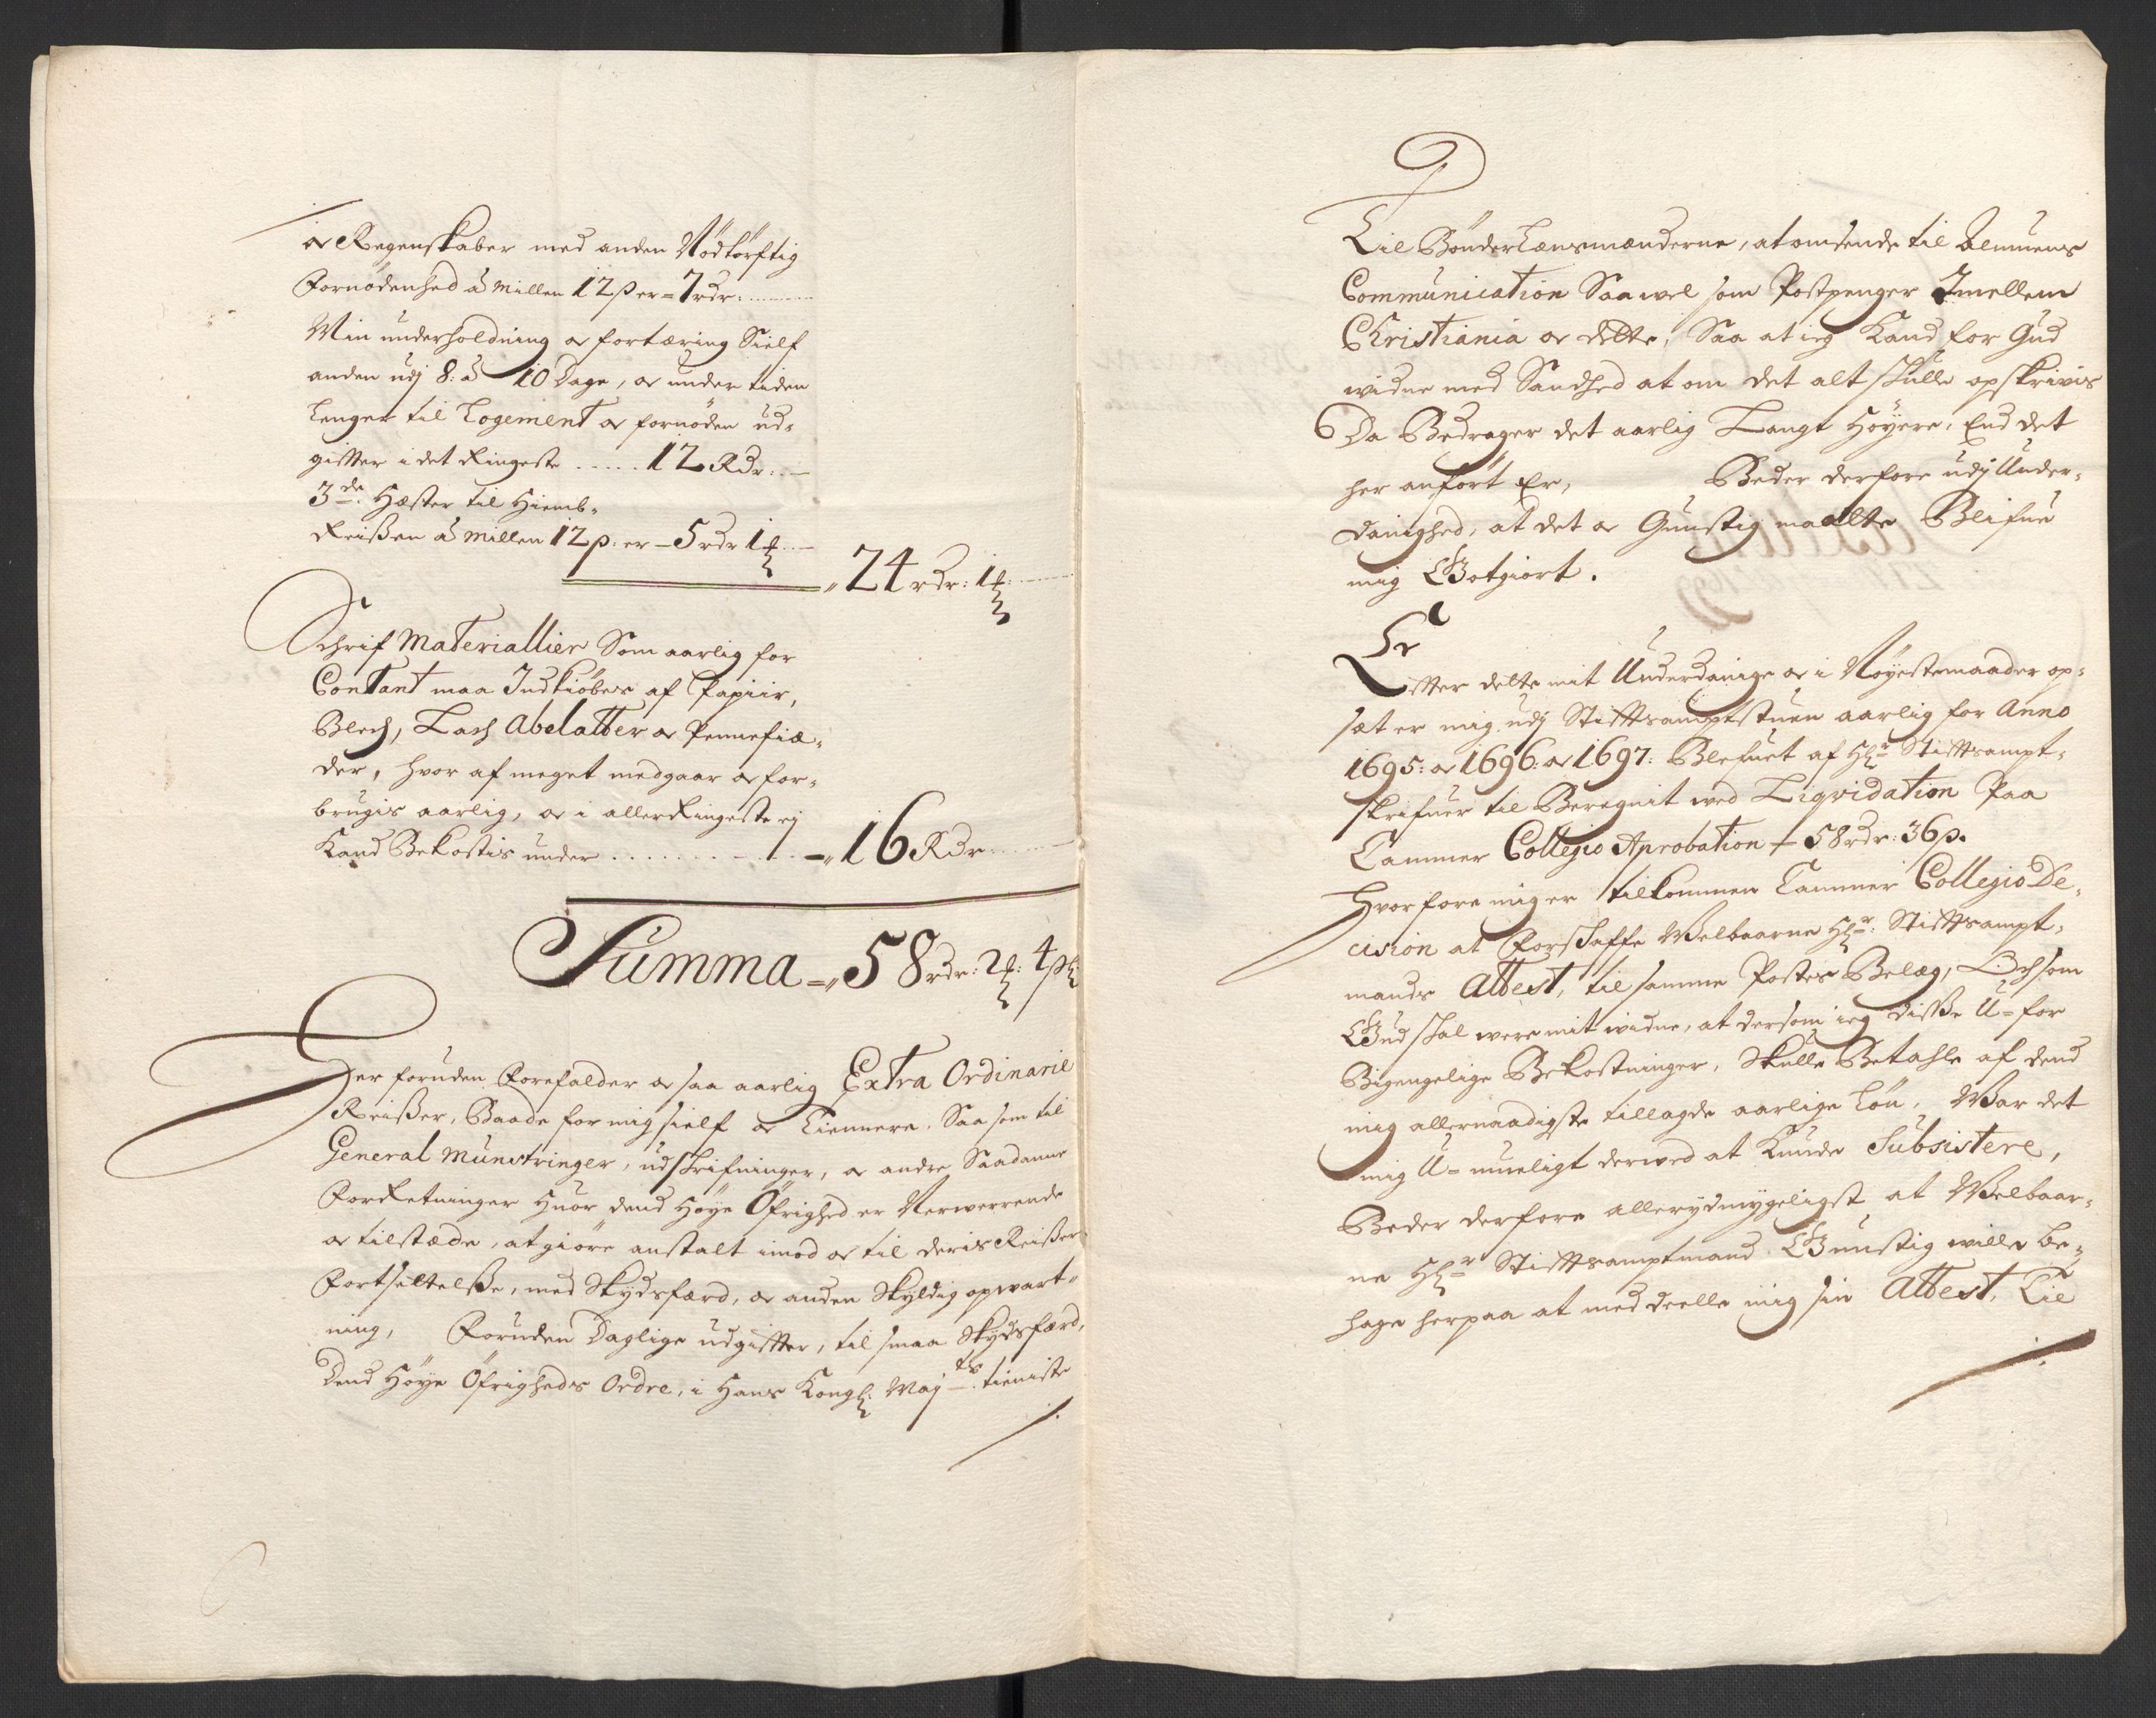 oc Regenskaber med anden Nødtørftig
Fornødenhed â Millen 12 s. er = 7 rdr:
Min underholdning oc fortæring Sielf
anden udj 8: â 10 Dage, oc under tiden
lenger til Logement oc fornøden ud-
gifter i det Ringeste ..... 12 Rdr:
3de Hæster til Hiemb-
Reißen â Millen 12 s. er - 5 rdr 1 ort
24 rdr: 1 ort
Schrif Materiallier Som aarlig for
Contant maa Indkiøbes af Papiir,
Blech, Lach Abelatter oc Pennefiæ-
der, hvor af meget medgaar oc for-
brugis aarlig, oc i aller Ringeste ej
Kand Bekostis under ........ 16 Rdr
Summa = 58 rdr: 2 ort: 4 sk:
Her foruden Forefalder oc saa aarlig Extra Ordinarie
Reißer, Baade for mig sielf oc Tiennere, Saa som til
General Munstringer, udskrifninger, oc andre Saadanne
Forretninger Huor dend Høye Øfrighed er Nerwerende
oc tilstæde, at giøre anstalt imod oc til deris Reißer
Fortsettelße, med Skydsfærd, oc anden Skyldig opwart-
ning, Foruden Daglige udgifter, til smaa Skydsfærd,
Dend Høye Øfrigheds Ordre, i Hans Kongl: Maj:ts tieniste
Til Bønder Lænsmænderne, at omsende til Almuens
Communication Saawel som Postpenger Imellem
Christiania oc dette, Saa at ieg Kand for Gud
widne med Sandhed at om det alt skulle opskrivis
Da Bedrager det aarlig Langt Høyere, End det
her anført Er, Beder derfore udj Under-
danighed, at det oc Gunstig maatte Blifue
mig Gotgiort.
Efter dette mit Underdanige oc i Nøyeste maader op-
sæt er mig udj Stiftsamptstuen aarlig for Anno
1695: oc 1696: oc 1697: Blefuet af Hr Stiftsampt-
skrifuer til Beregnit wed Liqvidation Paa
Cammer Collegio Aprobation + 58 rdr: 36 s.
Hvorfore mig er tilkommen Cammer Collegio De-
cision at Forschaffe Welbaarne Hr: Stiftsampt-
mands Attest, til samme Postes Belæg, Och som
Gud skal were mit widne, at dersom ieg diße U-for
Bigengelige Bekostninger, Skulle Betahle af dend
mig allernaadigste tillagde aarlige Løn, War det
mig U-mueligt derwed at Kunde Subsistere,
Beder derfore allerydmygeligst at Welbaar-
ne Hr Stiftsamptmand Gunstig wille Be-
hage herpaa at meddeelle mig sin Attest, Til